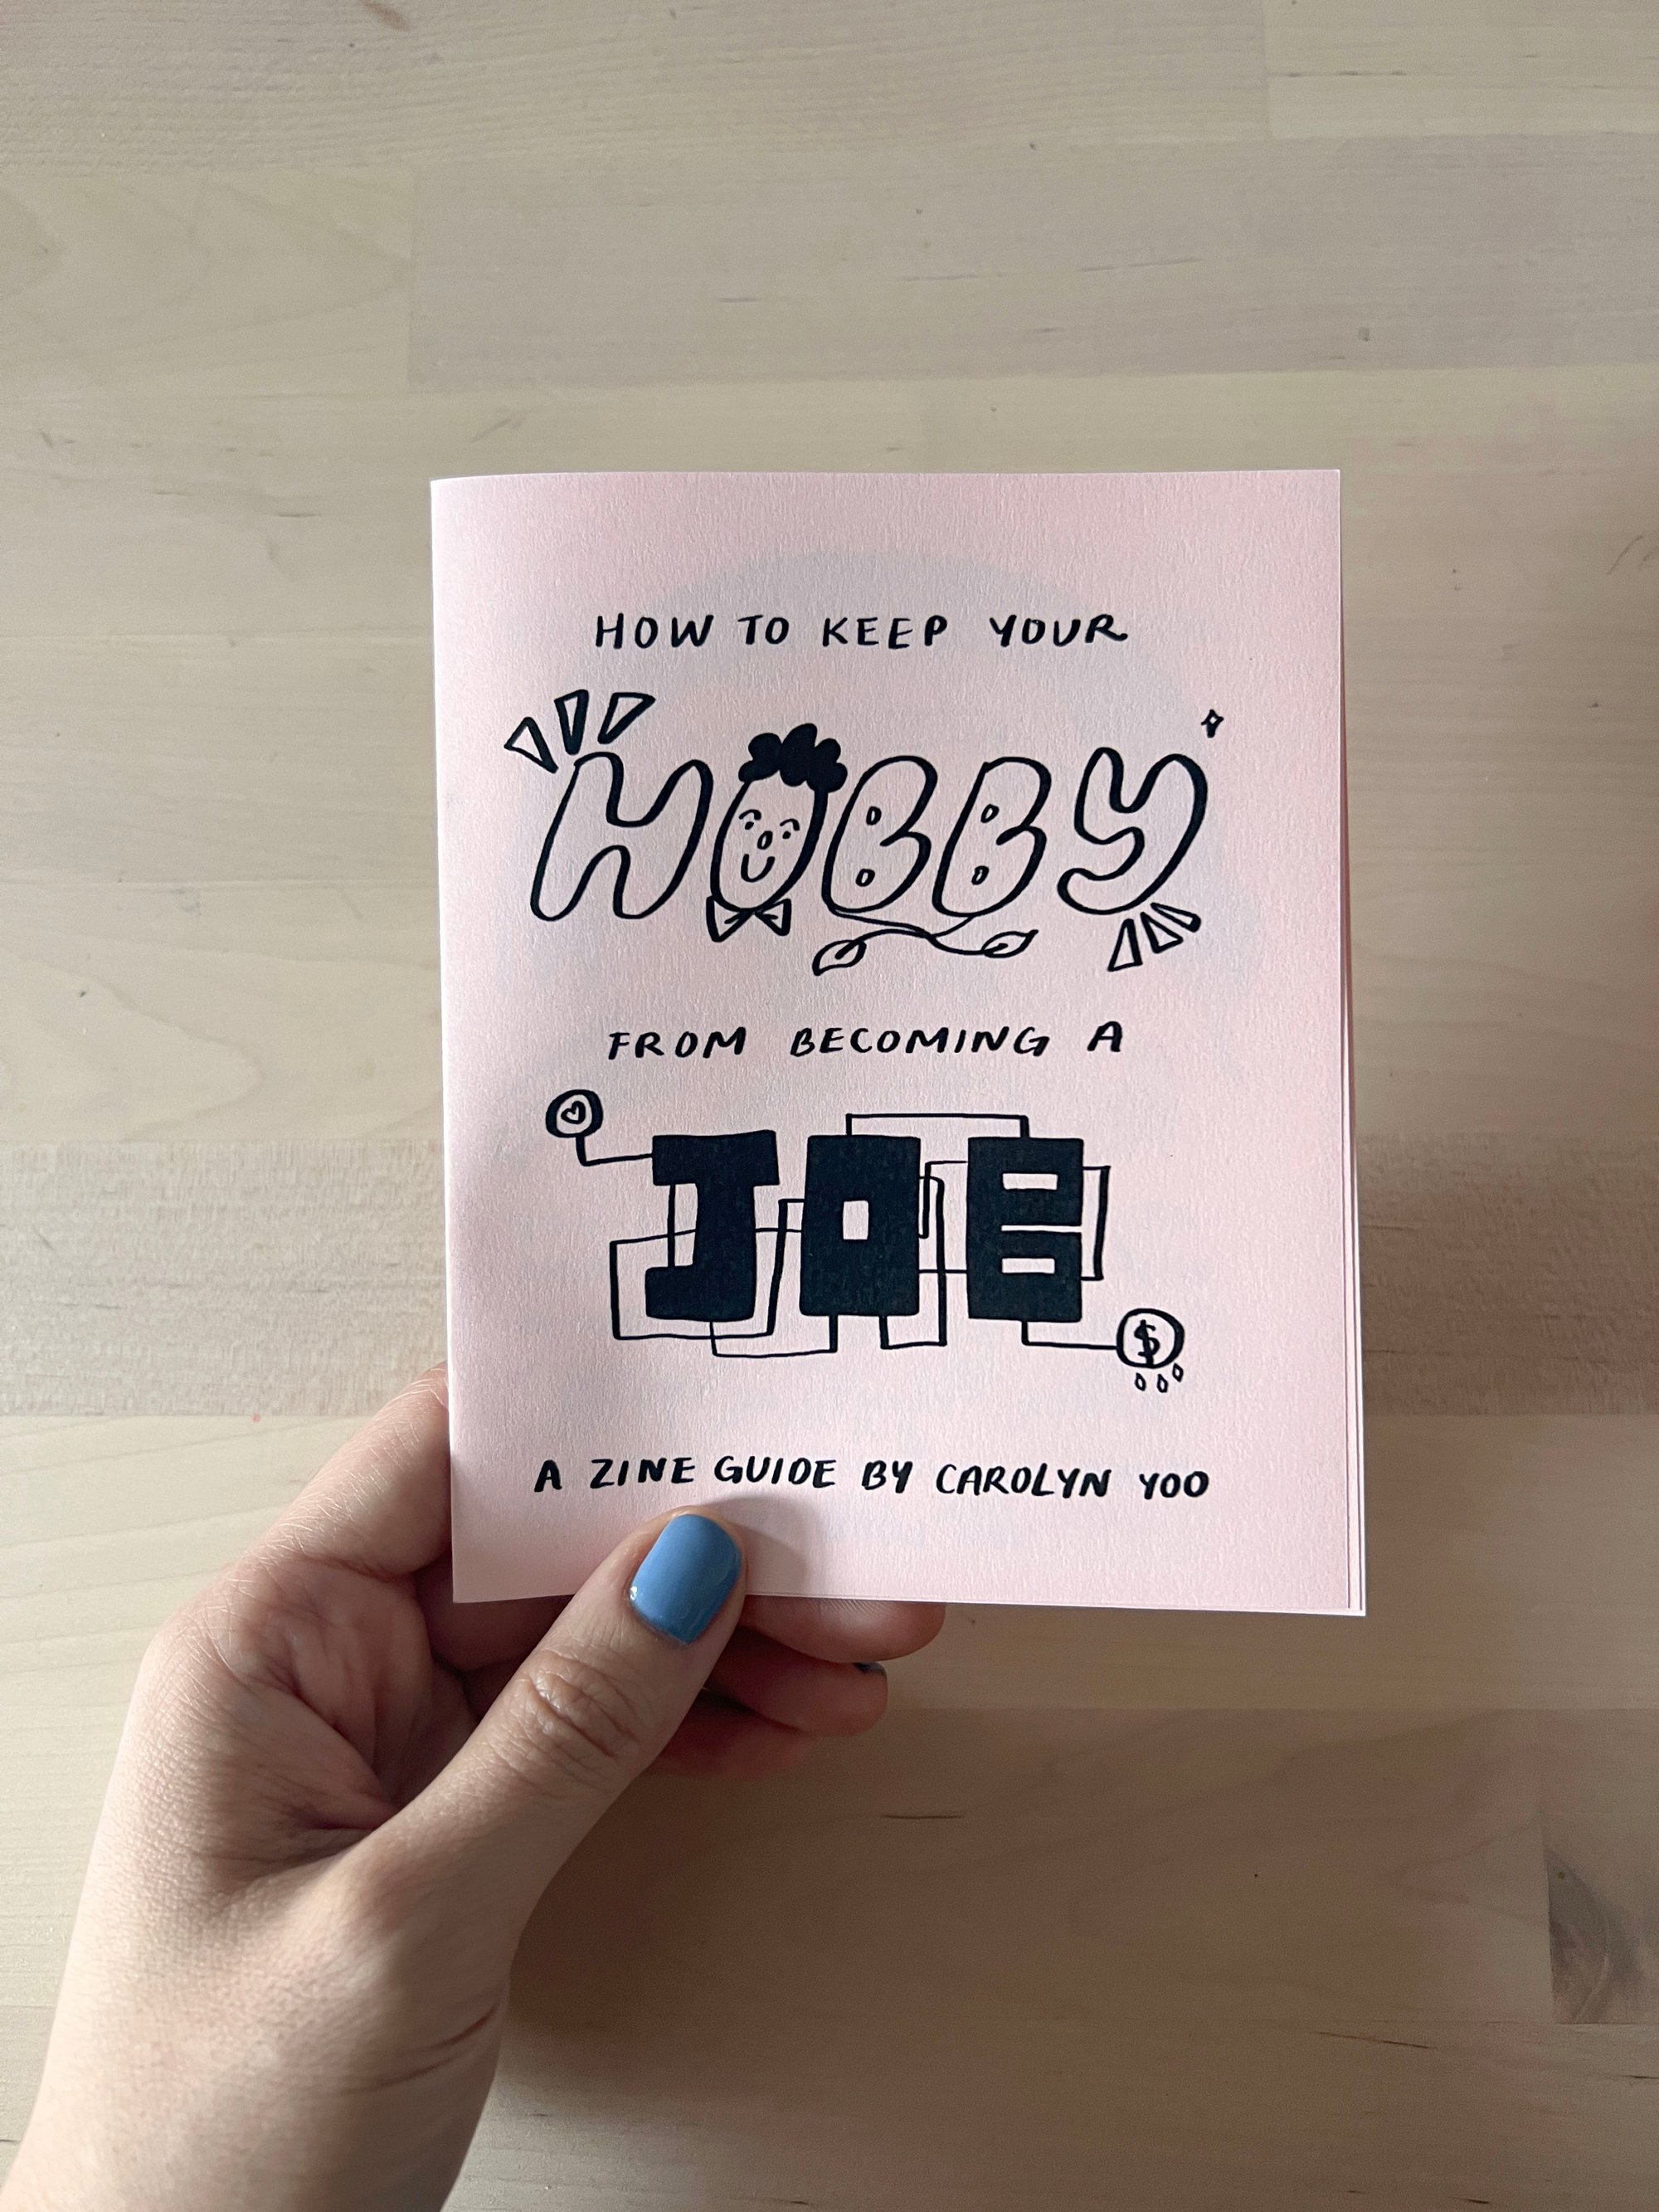 HOW TO KEEP YOUR
HOBBY
FROM BECOMING A
JOB
$
A ZINE GUIDE BY CAROLYN YOO